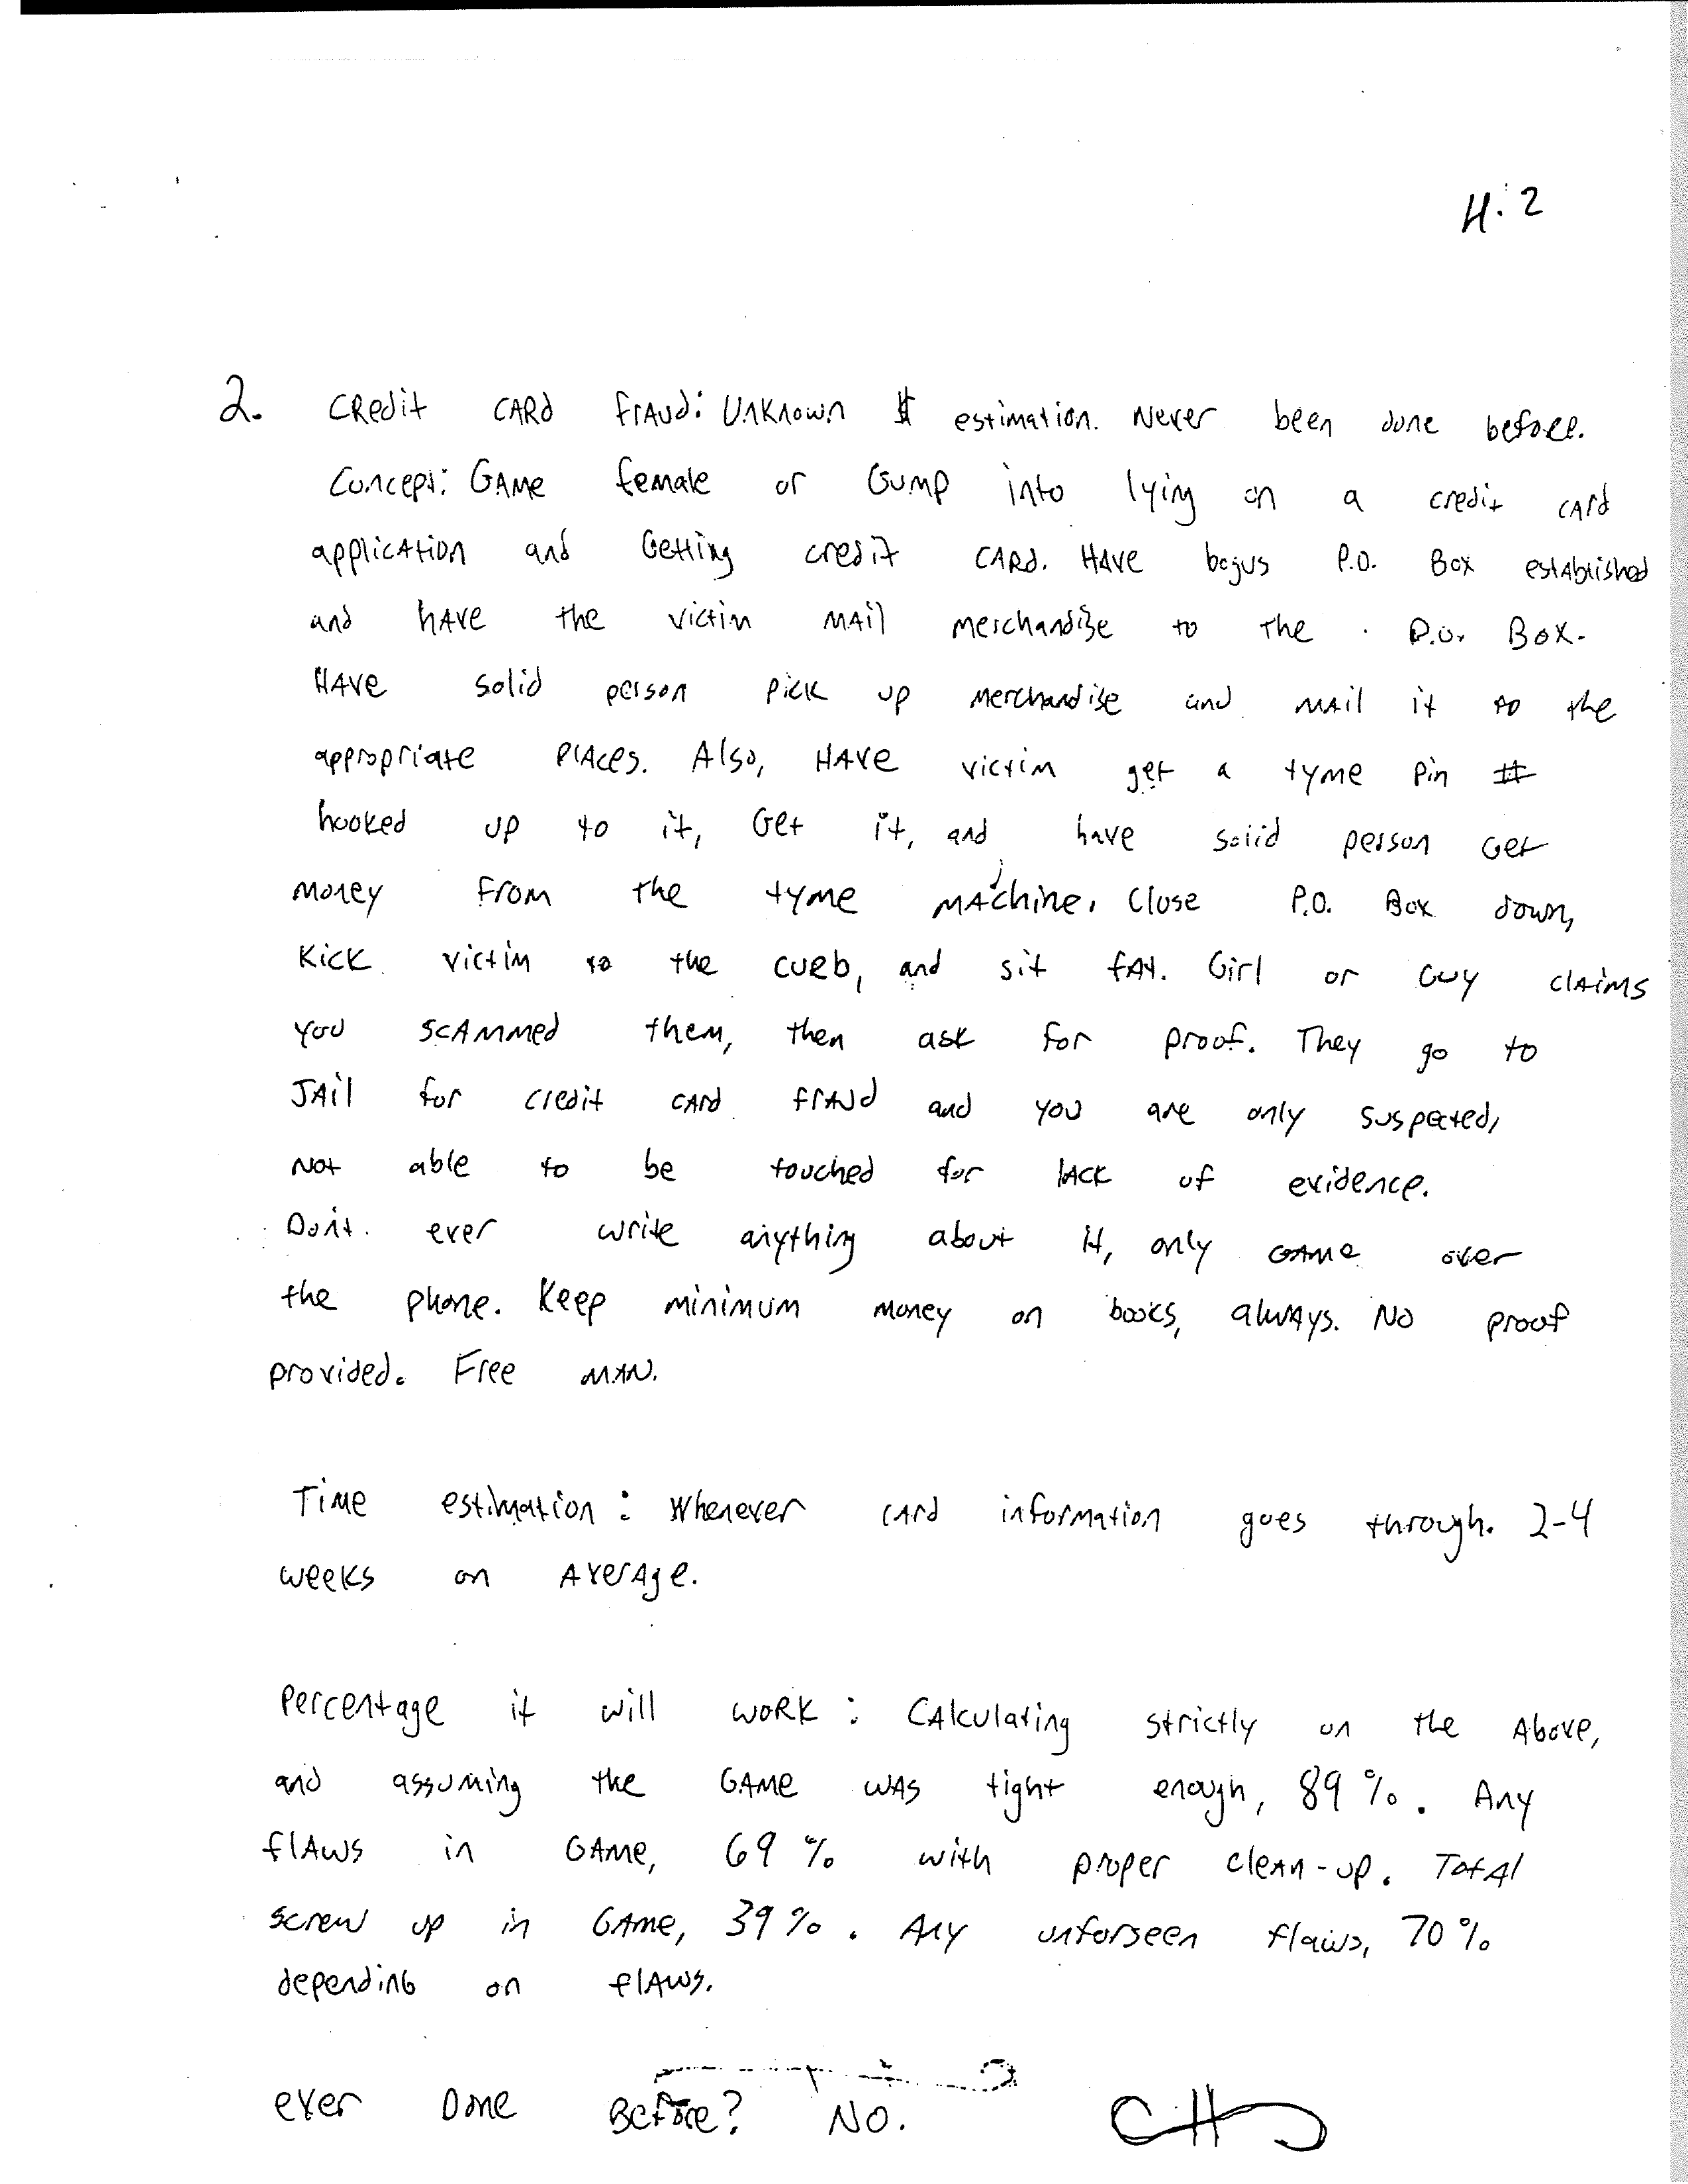 H.2
2. Credit CARD FrAud: Unknown $ estimation. Never been done before.
Concept: GAMe female or Gump into lying on a credit cArd
applicAtion and Getting credit CARd. HAve bogus P.O. Box estAblished
and hAve the victim MAil merchandise to the P.O. Box.
HAve solid person pick up Merchandise and MAil it to the
appropriate PlAces. Also, HAve victim get a tyme Pin #
hooked up to it, Get it, and have solid person Get
Money From the tyme MAchine. Close P.O. Box down,
Kick victim to the curb, and sit fAt. Girl or Guy clAims
you scAmmed them, then ask for proof. They go to
JAil for credit cArd frAud and you are only suspected,
Not able to be touched for lAck of evidence.
Don't ever write anything about it, only GAMe over
the phone. Keep minimum money on books, always. No proof
provided. Free MAN.
Time estimation: Whenever cArd information goes through. 2-4
weeks on AverAge.
Percentage it will work: CAlculating strictly on the Above,
and assuming the GAMe wAs tight enough, 89%. Any
flAws in GAMe, 69% with proper cleAn-up. TotAl
screw up in GAMe, 39%. Any unforseen flaws, 70%
depending on flAws.
ever Done Before? No.